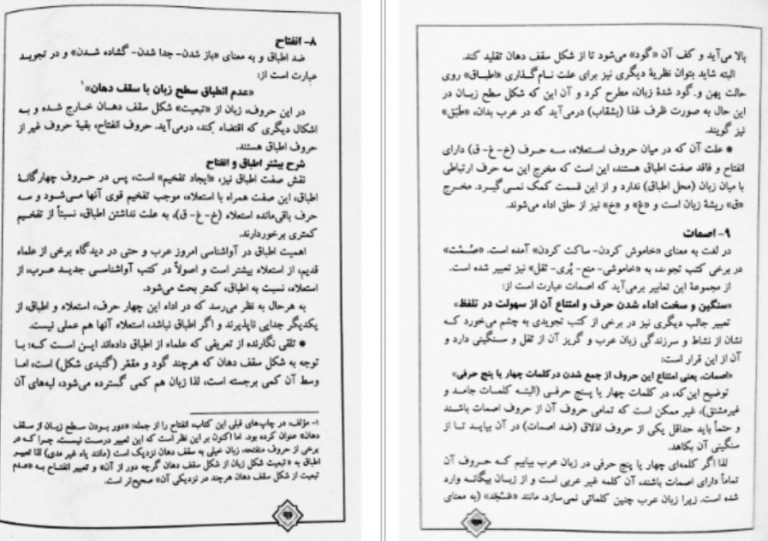 ۸- انفتاح
ضد اطباق و به معنای «باز شدن- جدا شدن- گشاده شدن» و در تجوید
عبارت است از:
«عدم انطباق سطح زبان با سقف دهان»۱
در این حروف، زبان از «تبعیت» شکل سقف دهان خارج شده و به
اشکال دیگری که اقتضاء کند، درمی‌آید. حروف انفتاح، بقیهٔ حروف غیر از
حروف اطباق هستند.
شرح بیشتر اطباق و انفتاح
نقش صفت اطباق نیز، «ایجاد تفخیم» است، پس در حروف چهارگانهٔ
اطباق، این صفت همراه با استعلاء، موجب تفخیم قوی آنها می‌شود و سه
حرف باقی‌مانده استعلاء (خ- غ- ق)، به علت نداشتن اطباق، نسبتاً از تفخیم
کمتری برخوردارند.
اهمیت اطباق در آواشناسی امروز عرب و حتی در دیدگاه برخی از علماء
قدیم، از استعلاء بیشتر است و اصولاً در کتب آواشناسی جدید عرب، از
استعلاء، نسبت به اطباق، کمتر بحث می‌شود.
به هرحال به نظر می‌رسد که در اداء این چهار حرف، استعلاء و اطباق، از
یکدیگر جدایی ناپذیرند و اگر اطباق نباشد، استعلاء آنها هم عملی نیست.
* تلقی نگارنده از تعریفی که علماء از اطباق داده‌اند این است که: با
توجه به شکل سقف دهان که هرچند گود و مقعر (گنبدی شکل) است، اما
وسط آن کمی برجسته است، لذا زبان هم کمی گسترده می‌شود، لبه‌های آن
۱- مؤلف، در چاپ‌های قبلی این کتاب، انفتاح را از جمله: «دور بودن سطح زبان از سقف
دهان» عنوان کرده بود. اما اکنون بر این نظر است که این تعبیر درست نیست. چرا که در
برخی از حروف منفتحه، زبان خیلی به سقف دهان نزدیک است (مانند یاء غیر مدی) لذا تعبیر
اطباق به «تبعیت شکل زبان از شکل سقف دهان گرچه دور از آن» و تعبیر انفتاح به «عدم
تبعیت از شکل سقف دهان هرچند در نزدیکی آن» صحیح‌تر است.
بالا می‌آید و کف آن «گود» می‌شود تا از شکل سقف دهان تقلید کند.
البته شاید بتوان نظریهٔ دیگری نیز برای علت نام‌گذاری «اطباق» روی
حالت پهن و گود شدهٔ زبان، مطرح کرد و آن این که شکل سطح زبان در
این حال به صورت ظرف غذا (بشقاب) درمی‌آید که در عرب بدان، «طَبَق»
نیز گویند.
* علت آن که در میان حروف استعلاء، سه حرف (خ- غ- ق) دارای
انفتاح و فاقد صفت اطباق هستند، این است که مخرج این سه حرف ارتباطی
با میان زبان (محل اطباق) ندارد و از این قسمت کمک نمی‌گیرد. مخرج
«ق» ریشهٔ زبان است و «غ» و «خ» نیز از حلق اداء می‌شوند.
۹- اصمات
در لغت به معنای «خاموش کردن- ساکت کردن» آمده است. «صُمْت»
در برخی کتب تجوید، به «خاموشی- منع- پُری- ثقل» نیز تعبیر شده است.
از مجموعهٔ این تعابیر برمی‌آید که اصمات عبارت است از:
«سنگین و سخت اداء شدن حرف و امتناع آن از سهولت در تلفظ»
تعبیر جالب دیگری نیز در برخی از کتب تجویدی به چشم می‌خورد که
نشان از نشاط و سرزندگی زبان عرب و گریز آن از ثقل و سنگینی دارد و
آن از این قرار است:
«اصمات، یعنی امتناع این حروف از جمع شدن درکلمات چهار یا پنج حرفی»
توضیح این‌که، در کلمات چهار یا پنج حرفی (البته کلمات جامد و
غیرمشتق)، غیر ممکن است که تمامی حروف آن از حروف اصمات باشند
و حتماً باید حداقل یکی از حروف اذلاق (ضد اصمات) در آن بیاید تا از
سنگینی آن بکاهد.
لذا اگر کلمه‌ای چهار یا پنج حرفی در زبان عرب بیابیم که حروف آن
تماماً دارای اصمات باشند، آن کلمه غیر عربی است و از زبان بیگانه وارد
شده است. زیرا زبان عرب چنین کلماتی نمی‌سازد. مانند «عَسْجَد» (به معنای